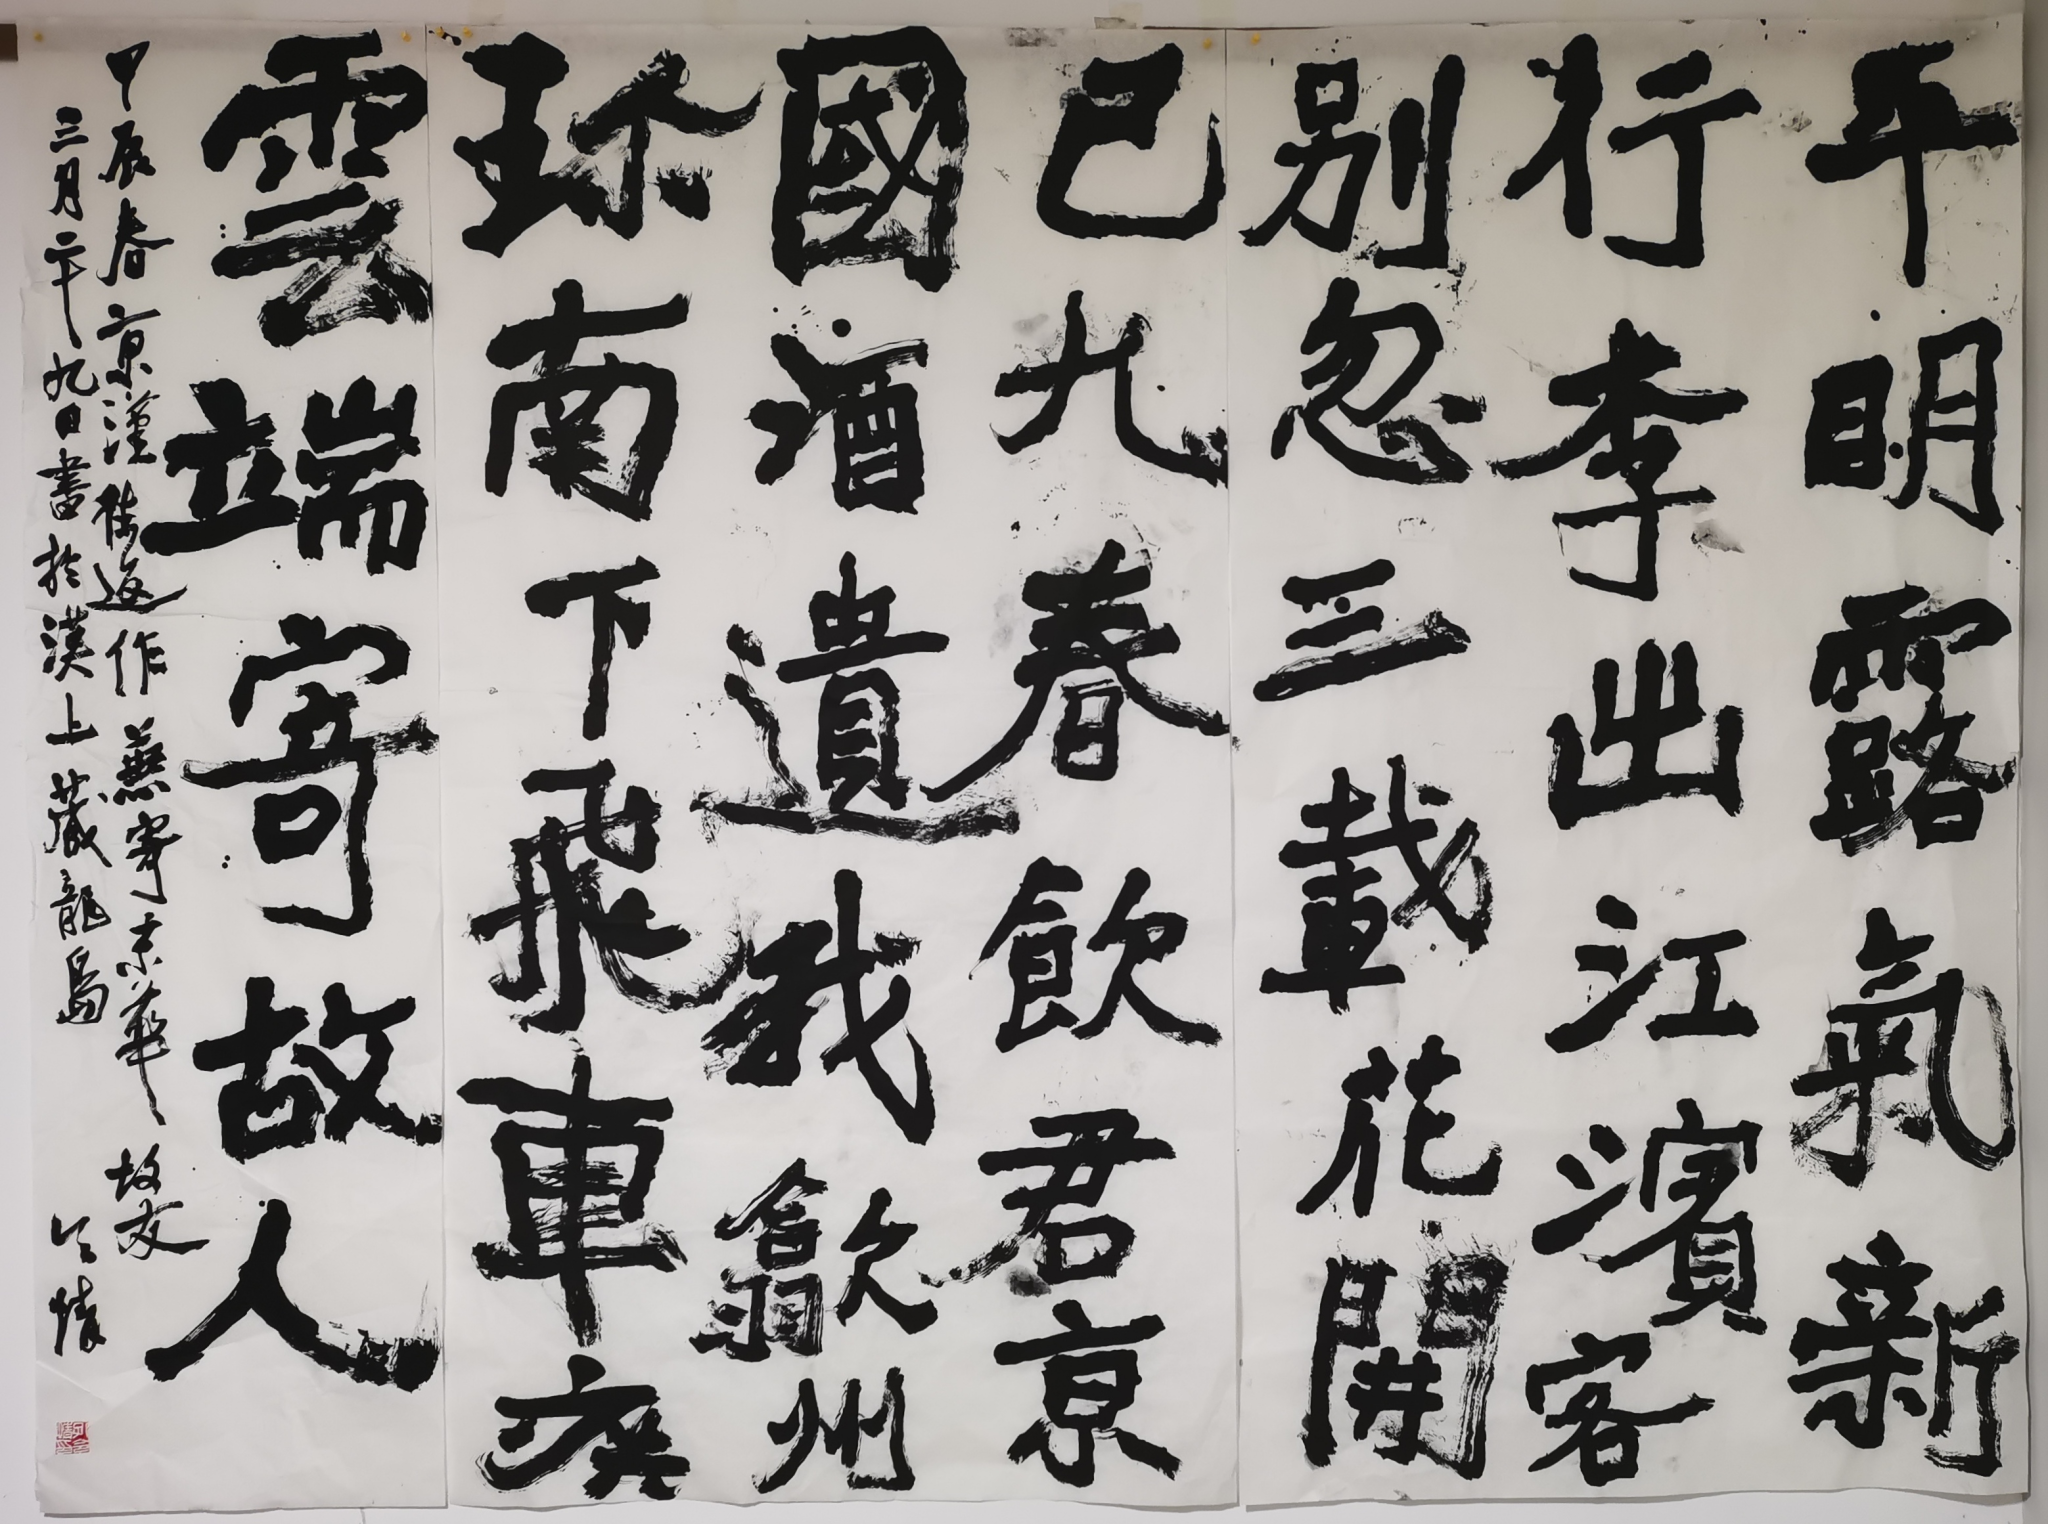 平明露氣新
行李出江濱客
別忽三載花開
已九春飲君京
國酒遺我歙州
珎南下飛車疾
雲端寄故人
甲辰春京漢往返作兼寄京華故友
三月二十九日書於漢上藏龍島